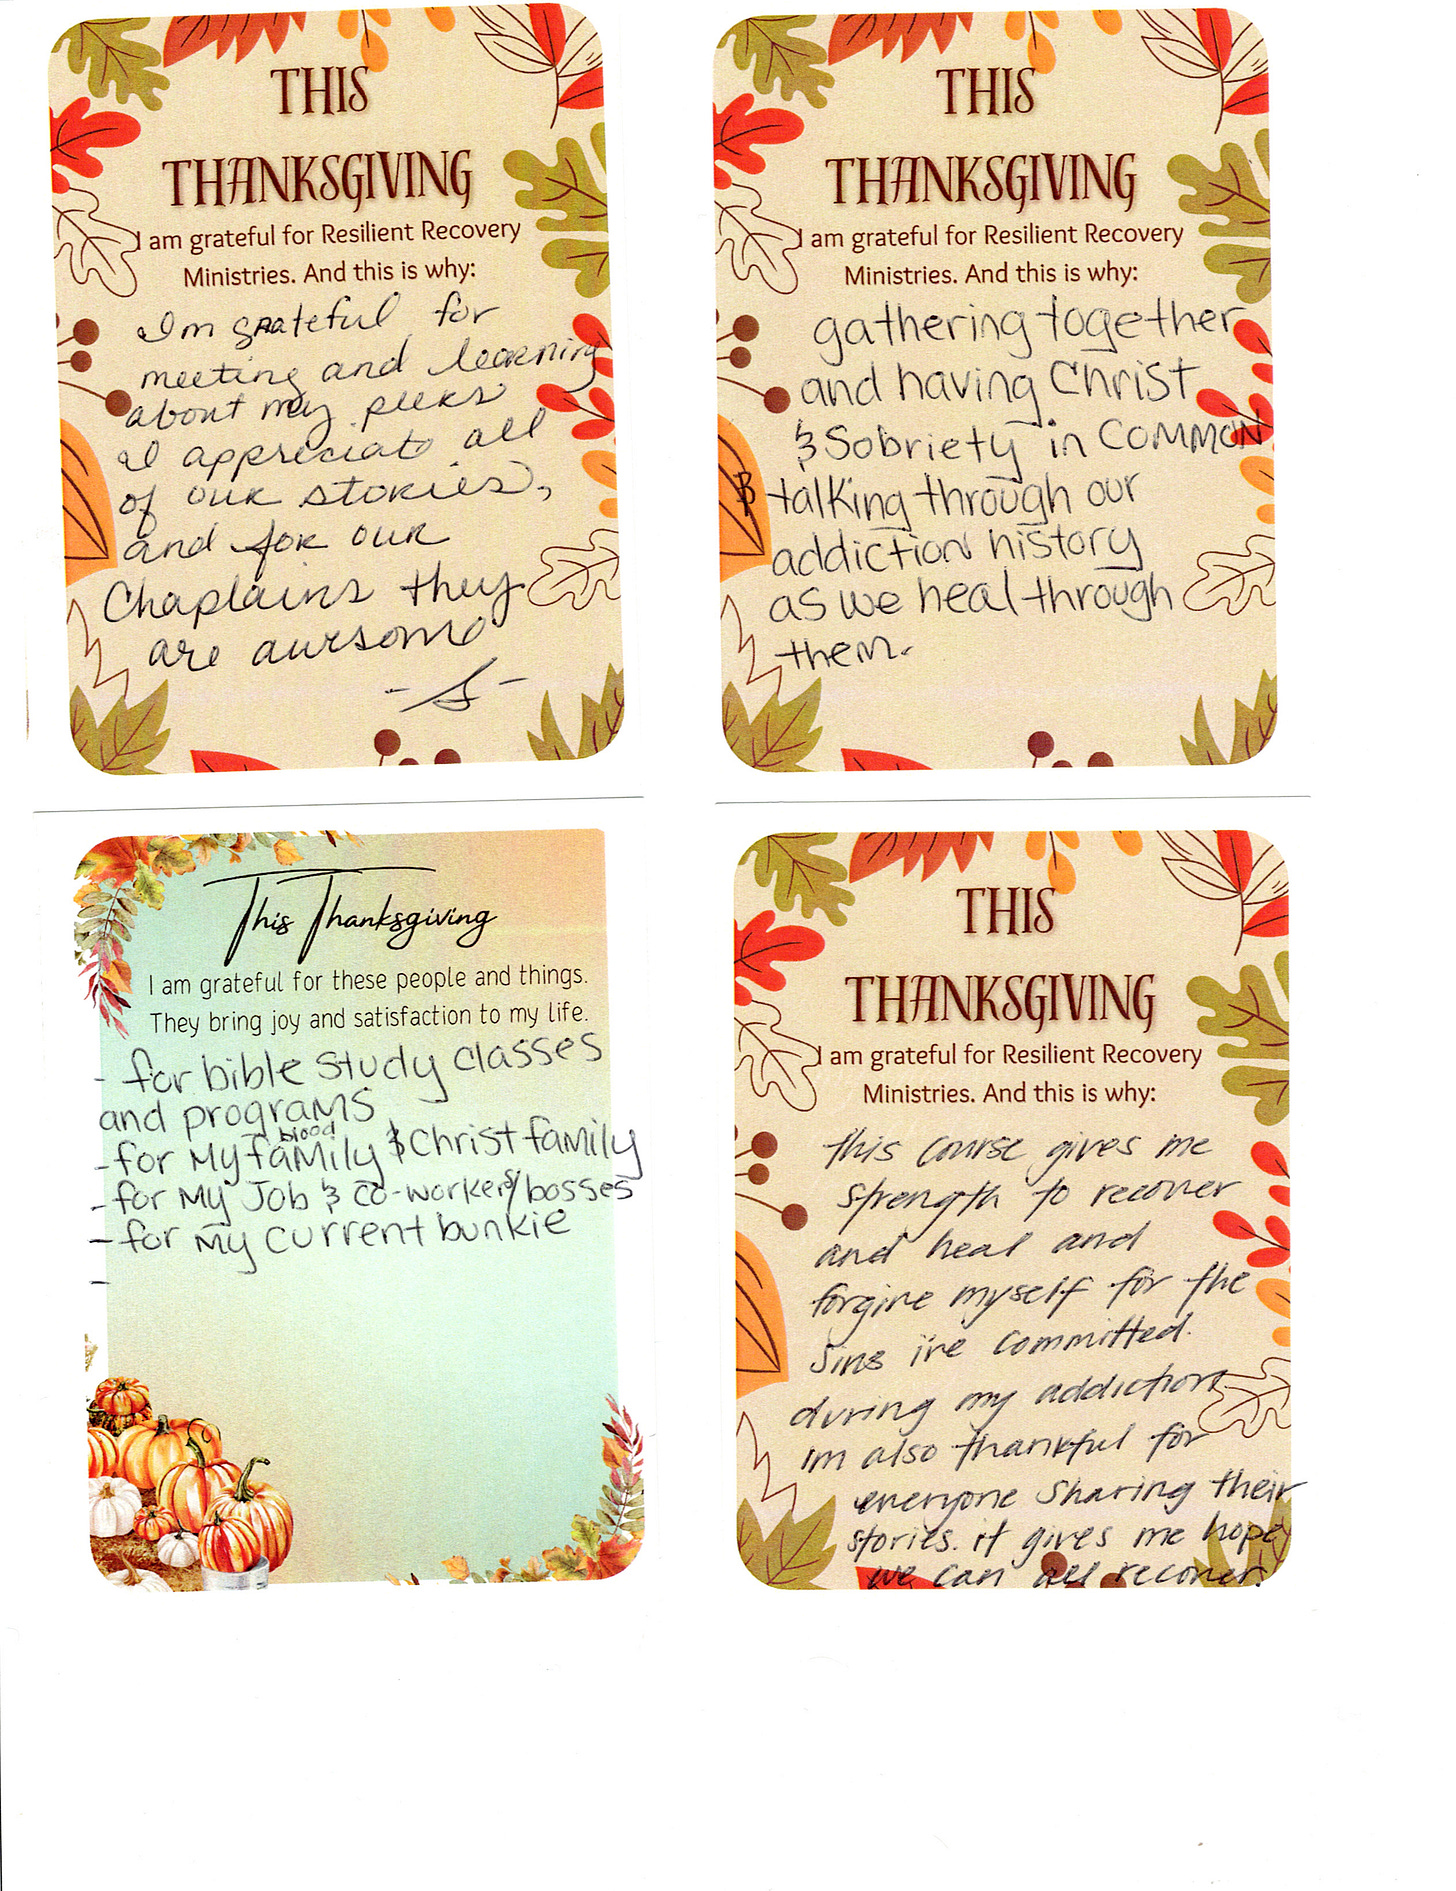 THIS
THANKSGIVING
I am grateful for Resilient Recovery
Ministries. And this is why:
I'm grateful for
meeting and learning
about my peers
I appreciate all
of our stories,
and for our
Chaplains they
are awrsome
-S-
THIS
THANKSGIVING
I am grateful for Resilient Recovery
Ministries. And this is why:
gathering together
and having Christ
& Sobriety in COMMON
& talking through our
addiction history
as we heal through
them.
This Thanksgiving
I am grateful for these people and things.
They bring joy and satisfaction to my life.
- for bible study classes
and programs
- for My blood family & Christ family
- for My Job & co-workers/bosses
- for My current bunkie
-
THIS
THANKSGIVING
I am grateful for Resilient Recovery
Ministries. And this is why:
this course gives me
strength to recover
and heal and
forgive myself for the
Sins i've committed.
during my addiction
im also thankful for
everyone sharing their
stories. it gives me hope
we can all recover.